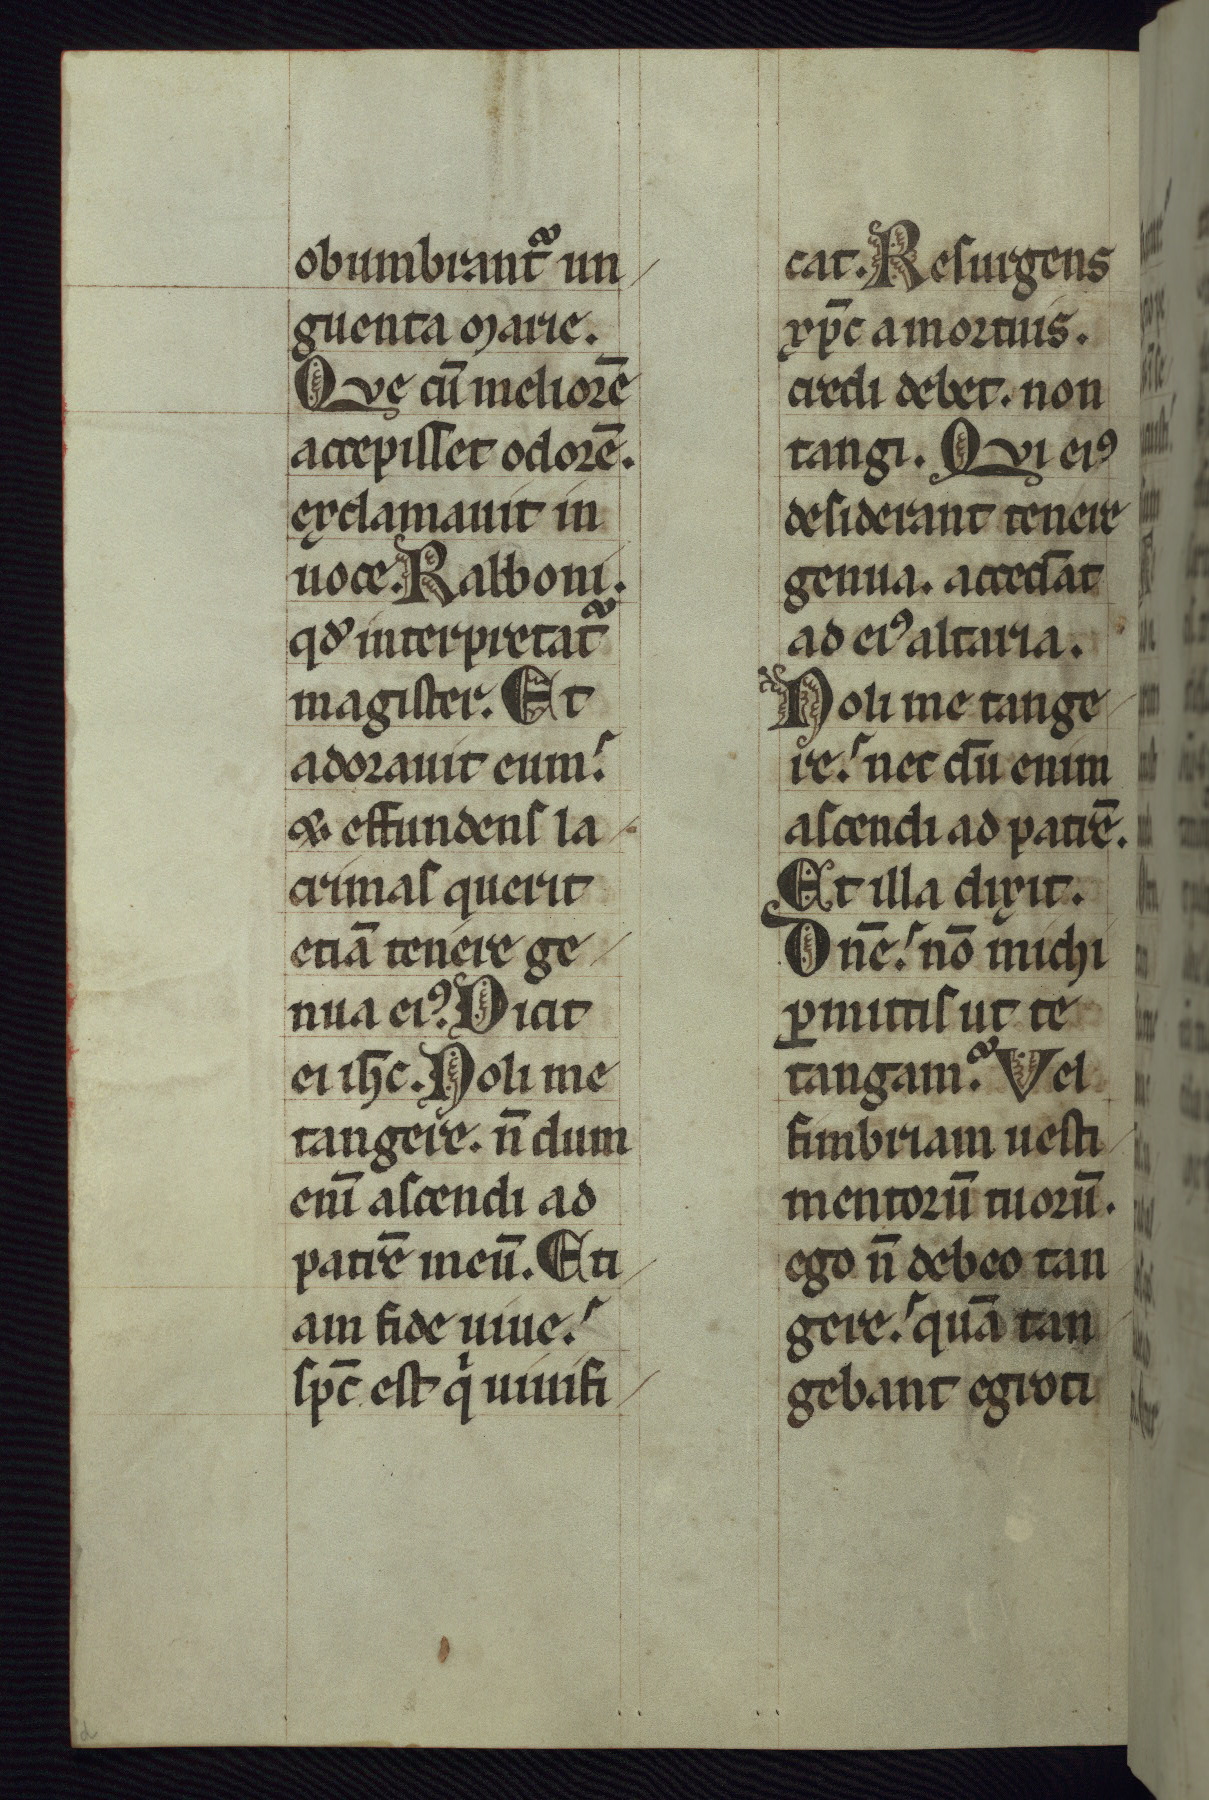 obumbrant᷑ un
guenta Marie.
Que cū meliorē
accepisset odorē.
exclamauit in
uoce. Rabboni.
qd' interpretat᷑
magister. Et
adorauit eum.
& effundens la
crimas querit
etiā tenere ge
nua eiꝰ. Dicit
ei ihc̄. Noli me
tangere. n̄ dum
enī ascendi ad
patrē meū. Eti
am fide uiue.
sp̄c est qͥ uiuifi
cat. Resurgens
xp̄c a mortuis.
credi debet. non
tangi. Qui eiꝰ
desiderant tenere
genua. accedāt
ad eiꝰ altaria.
Noli me tange
re. nec dū enim
ascendi ad patrē.
Et illa dixit.
Dn̄e. nō michi
ꝑmittis ut te
tangam. Vel
fimbriam uesti
mentorū tuorū.
ego n̄ debeo tan
gere. quā tan
gebant egroti